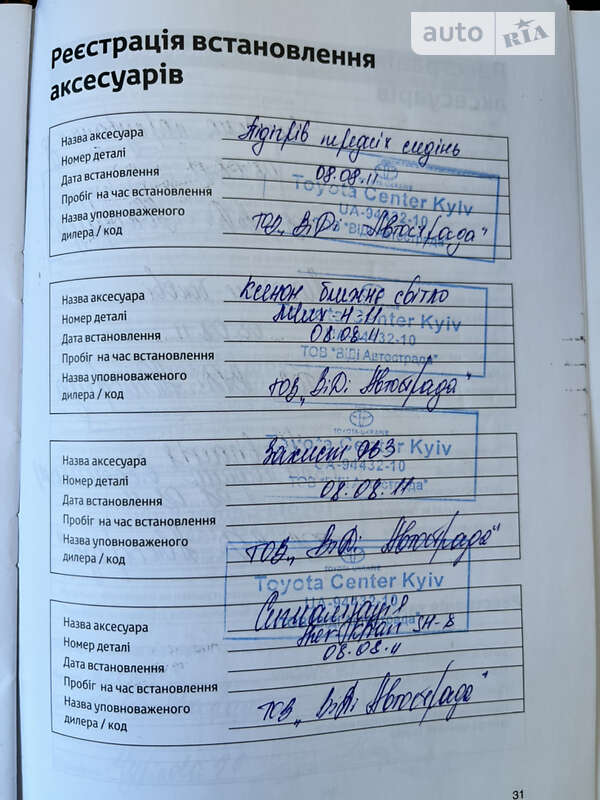 auto RIA
Реєстрація встановлення
аксесуарів
Назва аксесуара Підігрів передніх сидінь
Номер деталі
Дата встановлення 08.08.11
Пробіг на час встановлення
Назва уповноваженого
дилера / код ТОВ „ВіДі Автострада"
TOYOTA-UKRAINE
Toyota Center Kyiv
UA-94432-10
ТОВ "ВіДі Автострада"
Назва аксесуара Ксенон ближнє світло
Номер деталі H-11
Дата встановлення 08.08.11
Пробіг на час встановлення
Назва уповноваженого
дилера / код ТОВ „ВіДі Автострада"
Toyota Center Kyiv
UA-94432-10
ТОВ "ВіДі Автострада"
TOYOTA-UKRAINE
Toyota Center Kyiv
UA-94432-10
ТОВ "ВіДі Автострада"
Назва аксесуара Захист ДВЗ
Номер деталі
Дата встановлення 08.08.11
Пробіг на час встановлення
Назва уповноваженого
дилера / код ТОВ „ВіДі Автострада"
TOYOTA-UKRAINE
Toyota Center Kyiv
UA-94432-10
Назва аксесуара Сигналізація
Номер деталі
Дата встановлення 08.08.11
Пробіг на час встановлення
Назва уповноваженого
дилера / код ТОВ „ВіДі Автострада"
31